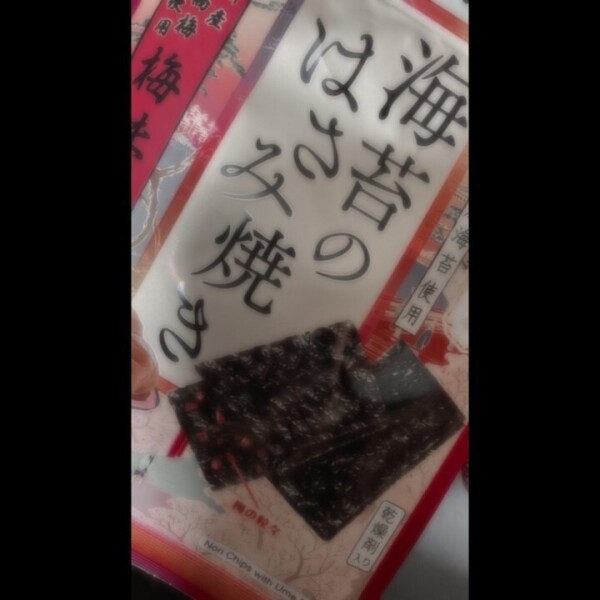 海苔の
はさみ焼き
梅味
海苔使用
梅の粒々
乾燥剤
入り
Nori Chips with Ume